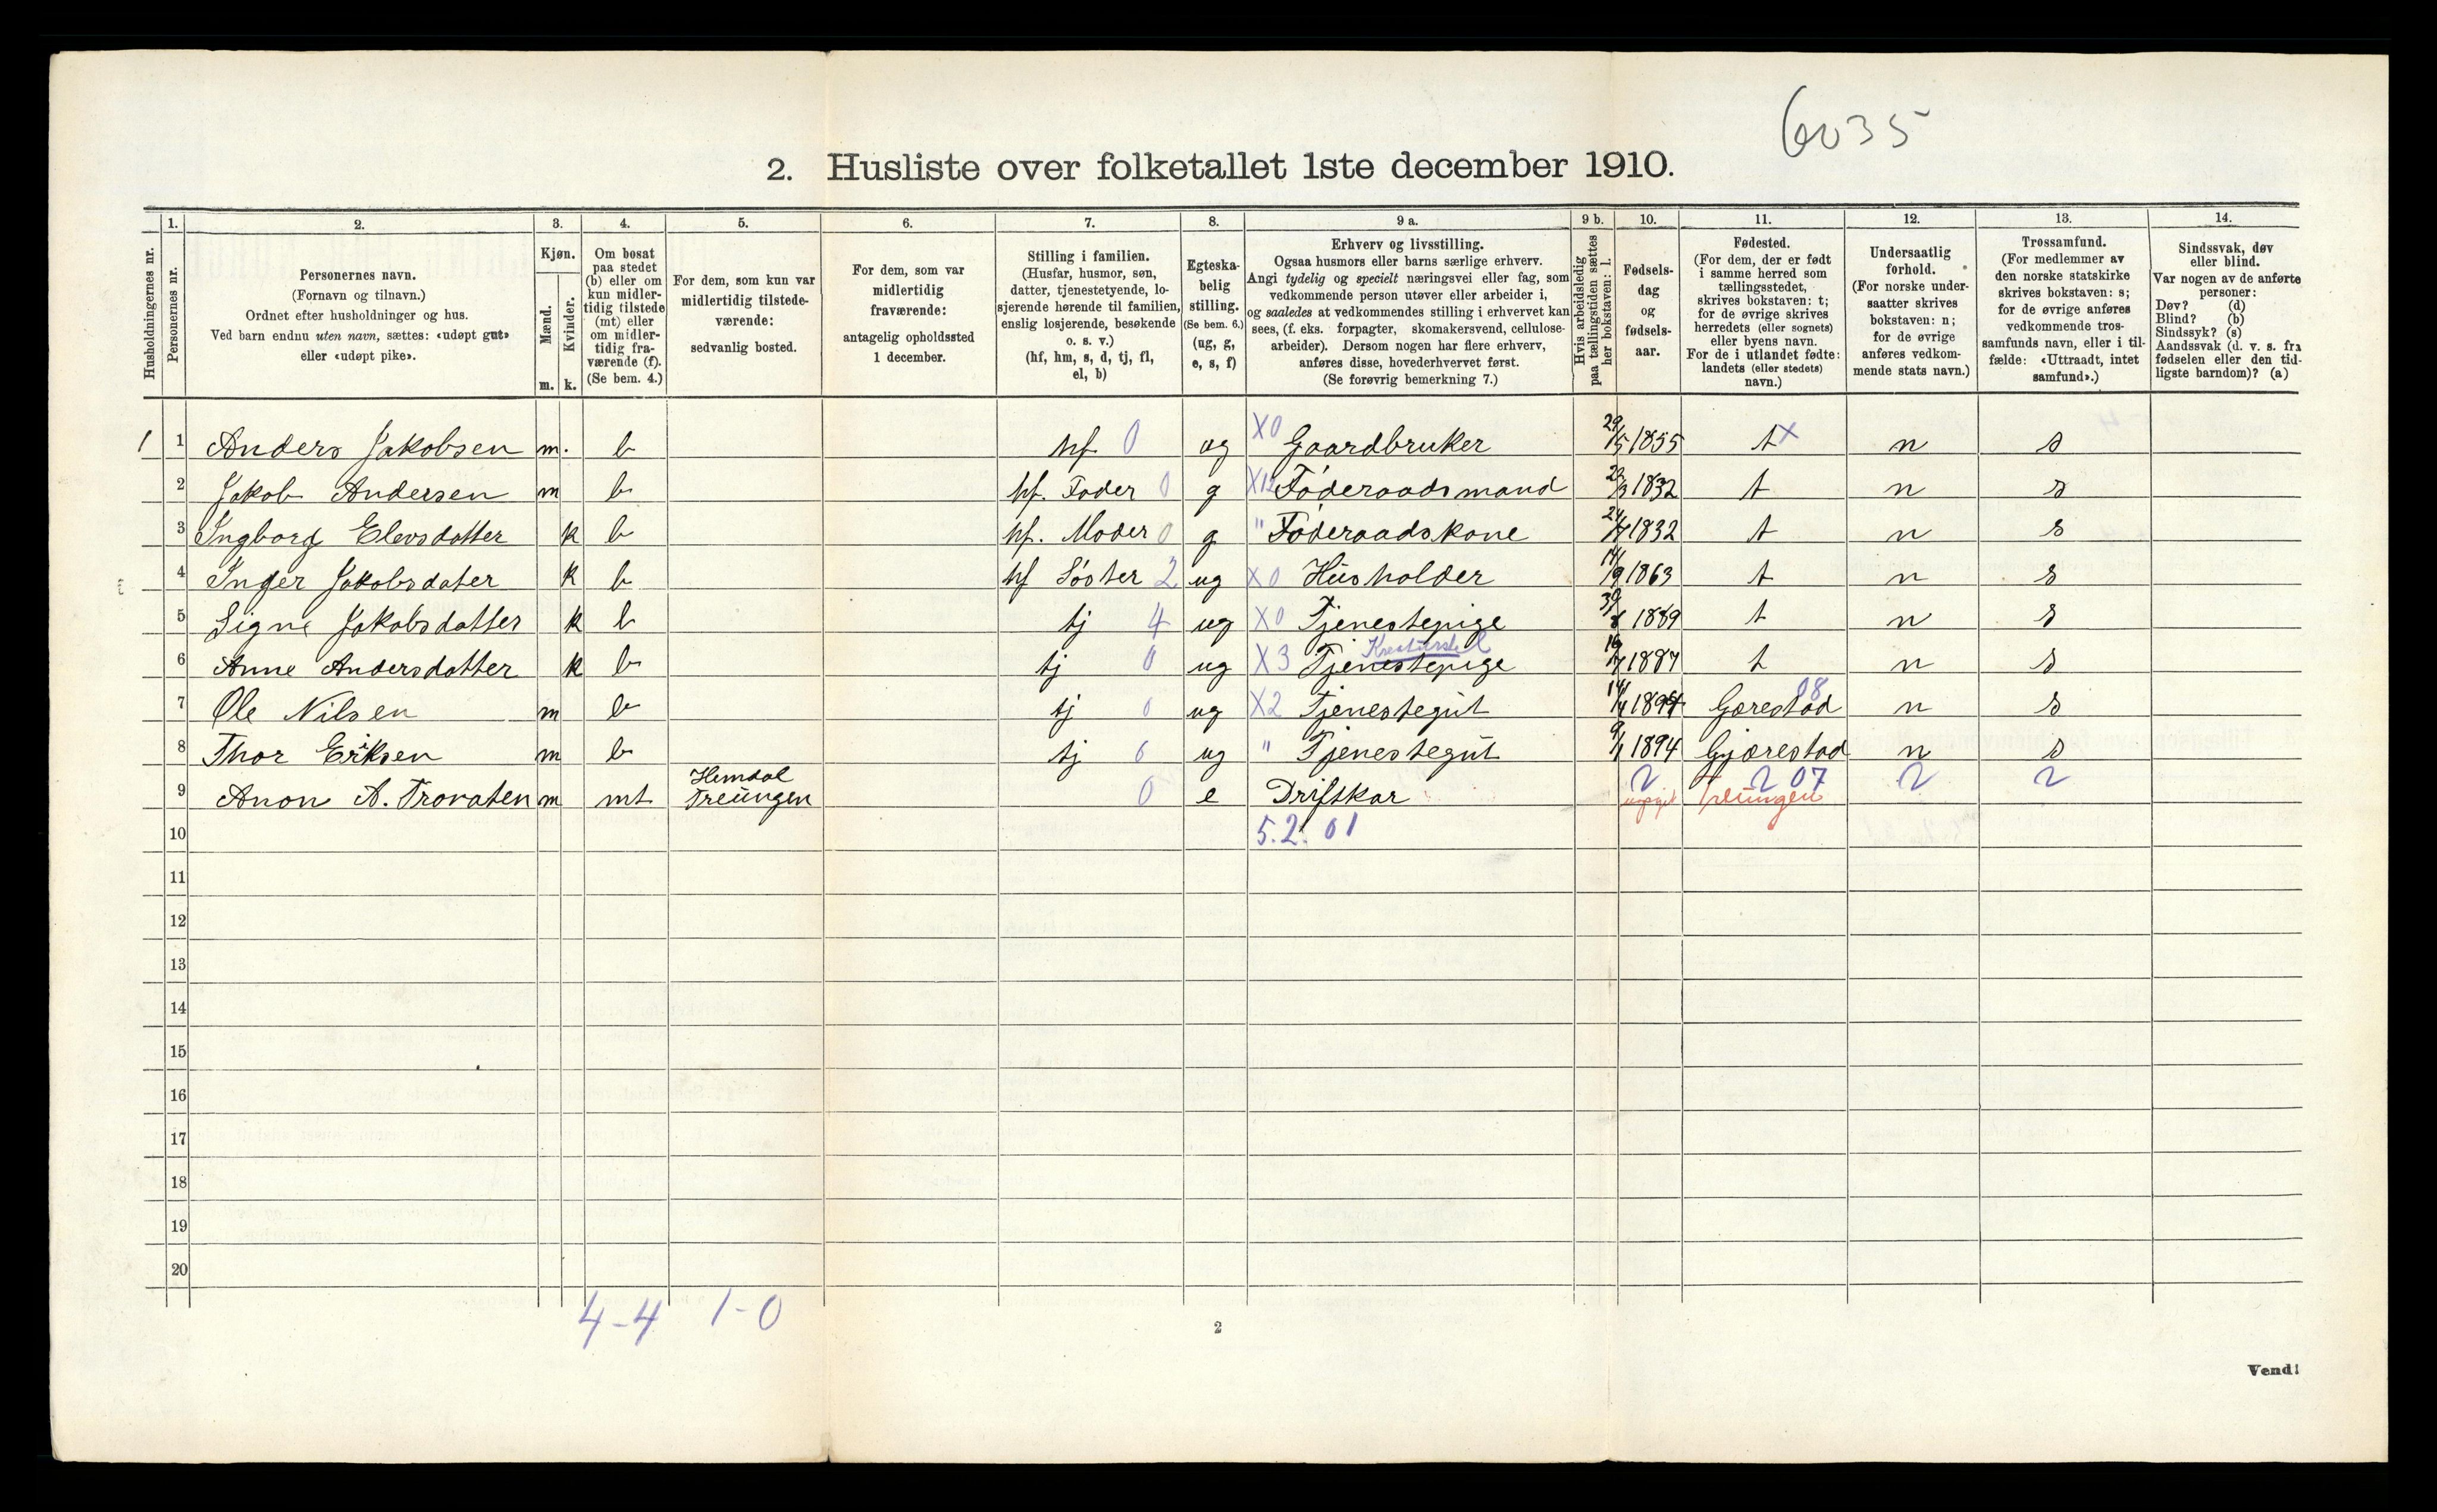 6035
2. Husliste over folketallet 1ste december 1910.
Husholdningernes nr.
1.
Personernes nr.
2.
Personernes navn.
(Fornavn og tilnavn.)
Ordnet efter husholdninger og hus.
Ved barn endnu uten navn, sættes: «udøpt gut»
eller «udøpt pike».
3.
Kjøn.
Mænd.
Kvinder.
m. k.
4.
Om bosat
paa stedet
(b) eller om
kun midler-
tidig tilstede
(mt) eller
om midler-
tidig fra-
værende (f).
(Se bem. 4.)
5.
For dem, som kun var
midlertidig tilstede-
værende:
sedvanlig bosted.
6.
For dem, som var
midlertidig
fraværende:
antagelig opholdssted
1 december.
7.
Stilling i familien.
(Husfar, husmor, søn,
datter, tjenestetyende, lo-
sjerende hørende til familien,
enslig losjerende, besøkende
o. s. v.)
(hf, hm, s, d, tj, fl,
el, b)
8.
Egteska-
belig
stilling.
(Se bem. 6.)
(ug, g,
e, s, f)
9 a.
Erhverv og livsstilling.
Ogsaa husmors eller barns særlige erhverv.
Angi tydelig og specielt næringsvei eller fag, som
vedkommende person utøver eller arbeider i,
og saaledes at vedkommendes stilling i erhvervet kan
sees, (f. eks. forpagter, skomakersvend, cellulose-
arbeider). Dersom nogen har flere erhverv,
anføres disse, hovederhvervet først.
(Se forøvrig bemerkning 7.)
9 b.
Hvis arbeidsledig
paa tællingstiden sættes
her bokstaven: l.
10.
Fødsels-
dag
og
fødsels-
aar.
11.
Fødested.
(For dem, der er født
i samme herred som
tællingsstedet,
skrives bokstaven: t;
for de øvrige skrives
herredets (eller sognets)
eller byens navn.
For de i utlandet fødte:
landets (eller stedets)
navn.)
12.
Undersaatlig
forhold.
(For norske under-
saatter skrives
bokstaven: n;
for de øvrige
anføres vedkom-
mende stats navn.)
13.
Trossamfund.
(For medlemmer av
den norske statskirke
skrives bokstaven: s;
for de øvrige anføres
vedkommende tros-
samfunds navn, eller i til-
fælde: «Uttraadt, intet
samfund».)
14.
Sindssvak, døv
eller blind.
Var nogen av de anførte
personer:
Døv? (d)
Blind? (b)
Sindssyk? (s)
Aandssvak (d. v. s. fra
fødselen eller den tid-
ligste barndom)? (a)
1 1 Anders Jakobsen m. b hf 0 ug X0 Gaardbruker 29/5 1855 t X n s
2 Jakob Andersen m b hf. Fader 0 g X12 Føderaadsmand 23/3 1832 t n s
3 Ingborg Elevsdatter k b hf. Moder 0 g " Føderaadskone 1832 t n s
4 Inger Jakobsdater k b hf Søster 2 ug X0 Husholder 14/9 1863 t n s
5 Signe Jakobsdatter k b tj 4 ug X0 Tjenestepige 1889 t n s
6 Anne Andersdatter k b tj 0 ug X3 Tjenestepige 1887 t n s
7 Ole Nilsen m b tj 0 ug X2 Tjenestegut 14/4 Gjerestad 08 n s
8 Thor Eriksen m b tj 0 ug " Tjenestegut 9/1 1894 Gjærestad n s
9 Anon A. Trovaten m mt Hemdal Treungen 0 e Driftkar 2 Treungen 2 07 2 2
10 5.2. 01
11
12
13
14
15
16
17
18
19
20
4-4 1-0
2
Vend!